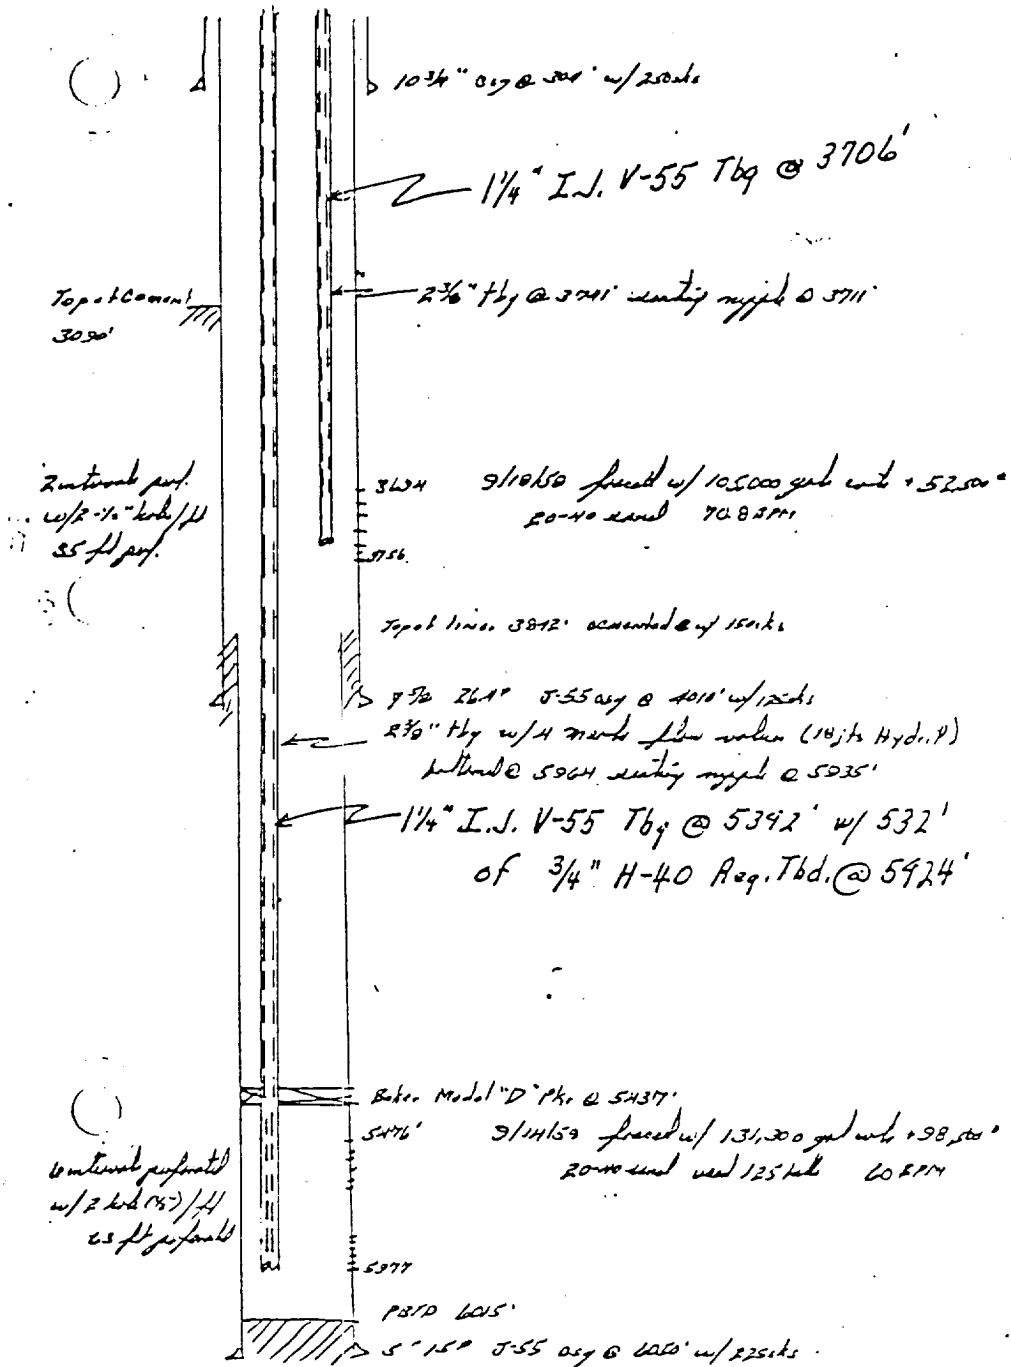 10 3/4" csg @ 304' w/250sks
1 1/4" I.J. V-55 Tbg @ 3706'
Top of Cement
3090'
2 3/8" tbg @ 3741' seating nipple @ 3711'
2 intervals perf.
w/2-½" hole/ft
35 ft perf.
3634
9/18/59 fraced w/ 105,000 gals wtr + 52,500#
20-40 sand 70.8 BPM
3756
Top of liner 3892' cemented w/ 150sks
7 5/8 26.4# J-55 csg @ 4010' w/125sks
2 3/8" tbg w/4 merla flow valves (18 jts Hydr. P)
bottomed @ 5964 seating nipple @ 5935'
1 1/4" I.J. V-55 Tbg @ 5392' w/ 532'
of 3/4" H-40 Reg. Tbd. @ 5924'
Baker Model "D" Pkr @ 5437'
5476'
9/14/59 fraced w/ 131,300 gal wtr + 98,500#
20-40 sand used 125 balls 60 BPM
6 intervals perforated
w/2 hole (½")/ft
63 ft perforated
5977
PBTD 6015'
5" 15# J-55 csg @ 6050' w/225sks